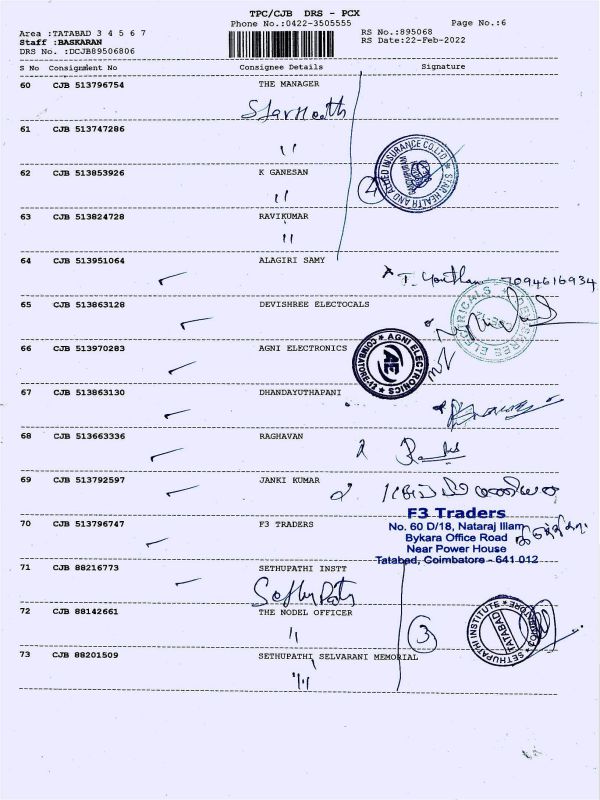 TPC/CJB DRS - PCX
Phone No.:0422-3505555
Page No.:6
Area :TATABAD 3 4 5 6 7
Staff :BASKARAN
DRS No. :DCJB89506806
RS No.:895068
RS Date:22-Feb-2022
S No Consignment No Consignee Details Signature
60 CJB 513796754 THE MANAGER
Star Health
61 CJB 513747286
"
STAR HEALTH AND ALLIED INSURANCE CO LTD
62 CJB 513853926 K GANESAN
"
4
63 CJB 513824728 RAVIKUMAR
"
64 CJB 513951064 ALAGIRI SAMY
7094616934
65 CJB 513863128 DEVISHREE ELECTOCALS
66 CJB 513970283 AGNI ELECTRONICS
AGNI ELECTRONICS
AE
67 CJB 513863130 DHANDAYUTHAPANI
68 CJB 513663336 RAGHAVAN
69 CJB 513792597 JANKI KUMAR
70 CJB 513796747 F3 TRADERS
F3 Traders
No. 60 D/18, Nataraj Illam
Bykara Office Road
Near Power House
Tatabad, Coimbatore - 641 012
71 CJB 88216773 SETHUPATHI INSTT
72 CJB 88142661 THE NODEL OFFICER
"
3
SETHUPATHI INSTITUTE
TATABAD
73 CJB 88201509 SETHUPATHI SELVARANI MEMORIAL
"